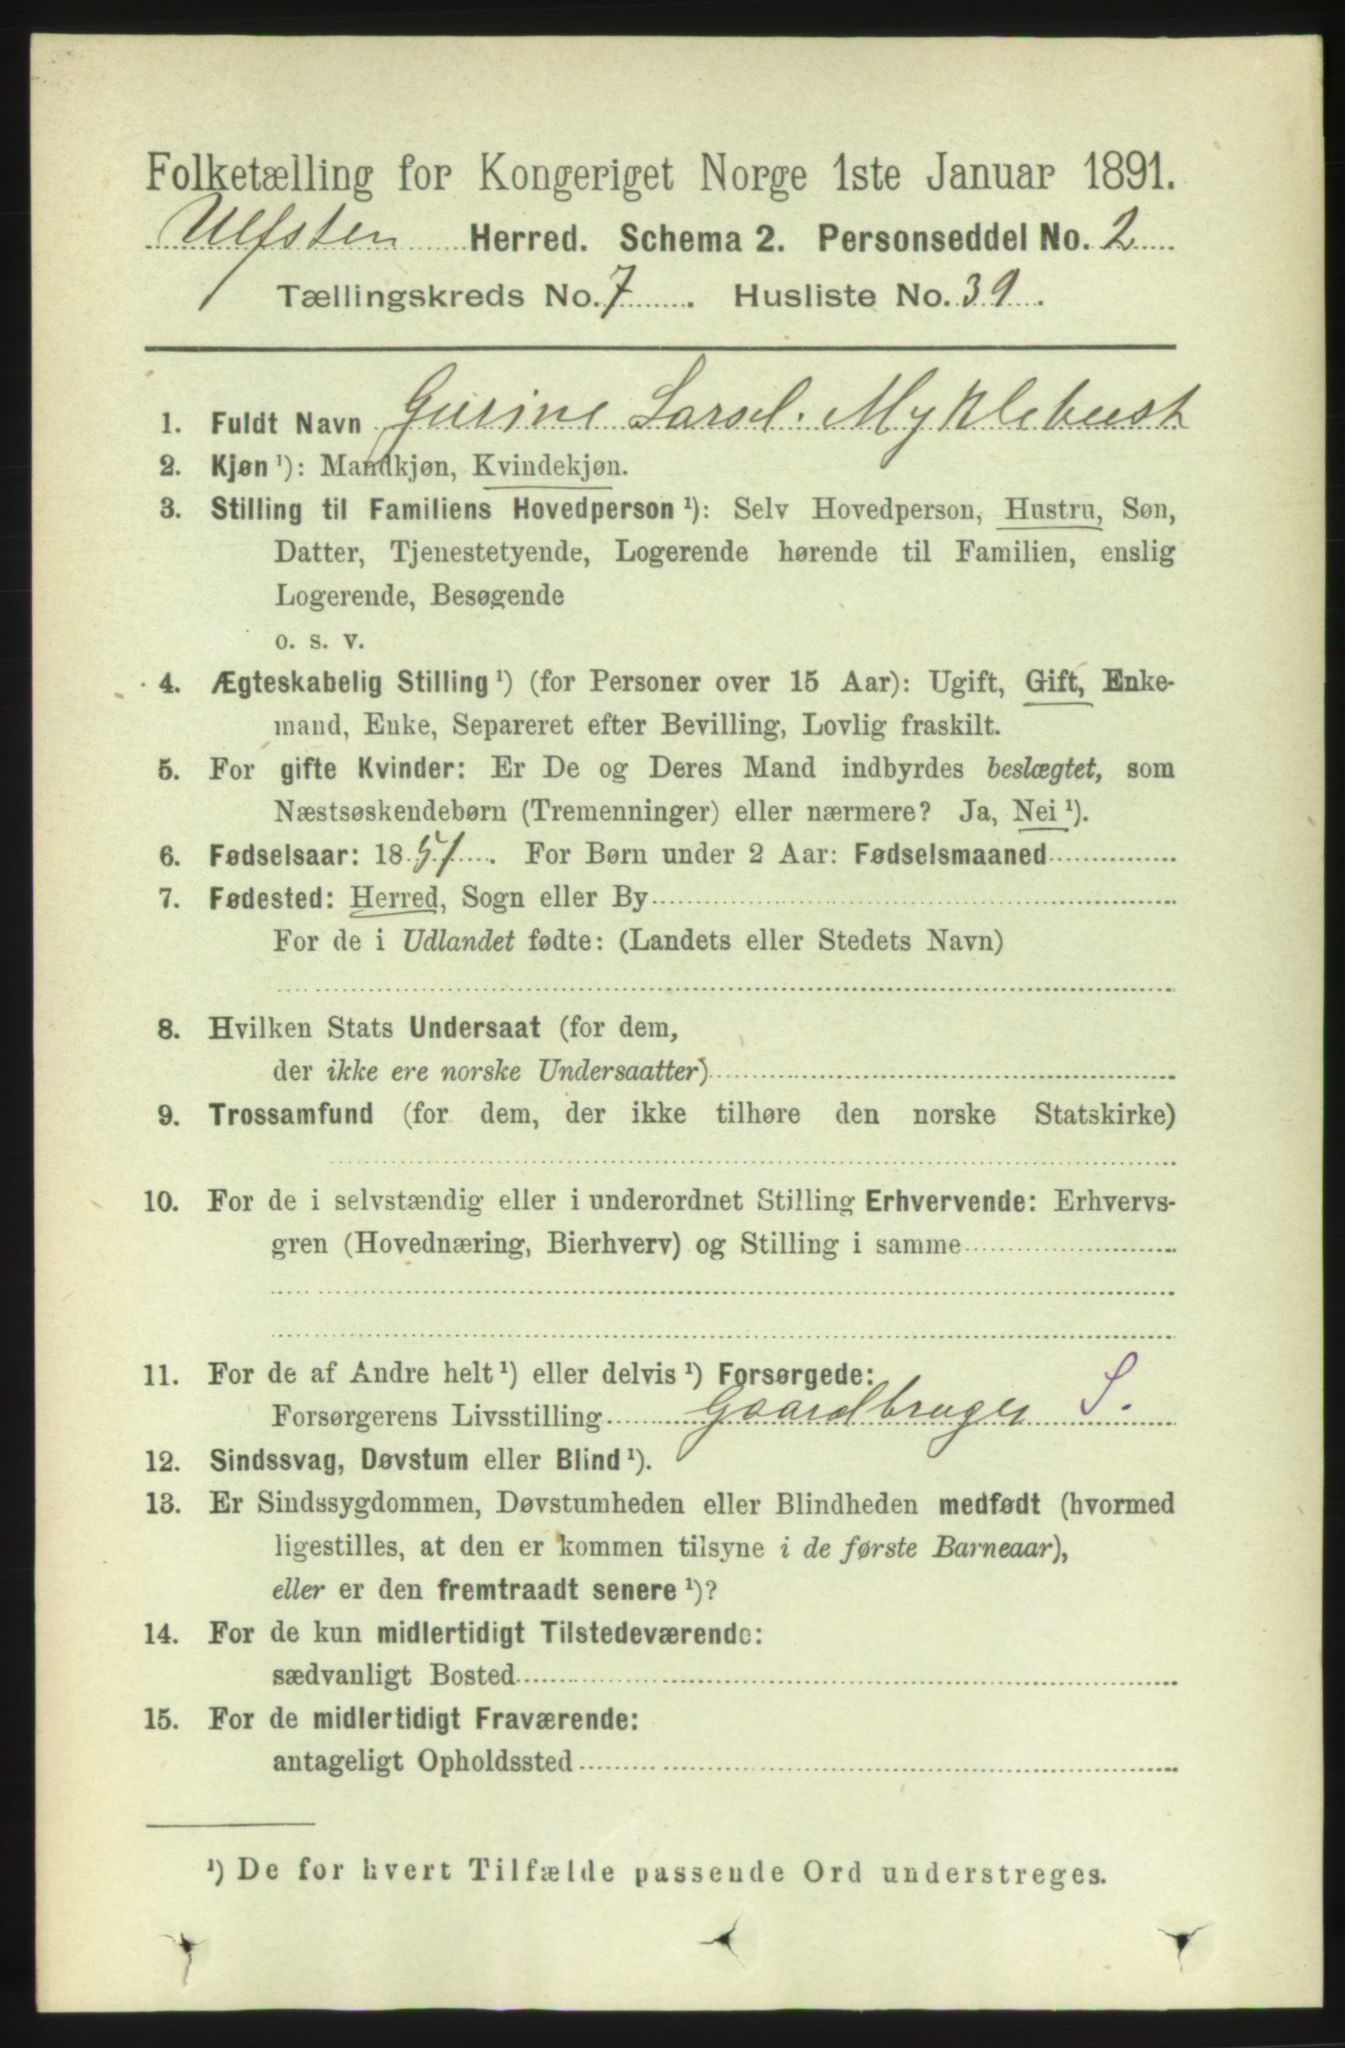 Folketælling for Kongeriget Norge 1ste Januar 1891.
Ulfsten Herred. Schema 2. Personseddel No. 2
Tællingskreds No. 7. Husliste No. 39.
1. Fuldt Navn Gurine Larsd. Myklebust
2. Kjøn ¹): Mandkjøn, Kvindekjøn.
3. Stilling til Familiens Hovedperson ¹): Selv Hovedperson, Hustru, Søn,
Datter, Tjenestetyende, Logerende hørende til Familien, enslig
Logerende, Besøgende
o. s. v.
4. Ægteskabelig Stilling ¹) (for Personer over 15 Aar): Ugift, Gift, Enke-
mand, Enke, Separeret efter Bevilling, Lovlig fraskilt.
5. For gifte Kvinder: Er De og Deres Mand indbyrdes beslægtet, som
Næstsøskendebørn (Tremenninger) eller nærmere? Ja, Nei ¹).
6. Fødselsaar: 1851. For Børn under 2 Aar: Fødselsmaaned
7. Fødested: Herred, Sogn eller By
For de i Udlandet fødte: (Landets eller Stedets Navn)
8. Hvilken Stats Undersaat (for dem,
der ikke ere norske Undersaatter)
9. Trossamfund (for dem, der ikke tilhøre den norske Statskirke)
10. For de i selvstændig eller i underordnet Stilling Erhvervende: Erhvervs-
gren (Hovednæring, Bierhverv) og Stilling i samme
11. For de af Andre helt ¹) eller delvis ¹) Forsørgede:
Forsørgerens Livsstilling Gaardbruger S.
12. Sindssvag, Døvstum eller Blind ¹).
13. Er Sindssygdommen, Døvstumheden eller Blindheden medfødt (hvormed
ligestilles, at den er kommen tilsyne i de første Barneaar),
eller er den fremtraadt senere ¹)?
14. For de kun midlertidigt Tilstedeværende:
sædvanligt Bosted
15. For de midlertidigt Fraværende:
antageligt Opholdssted
¹) De for hvert Tilfælde passende Ord understreges.